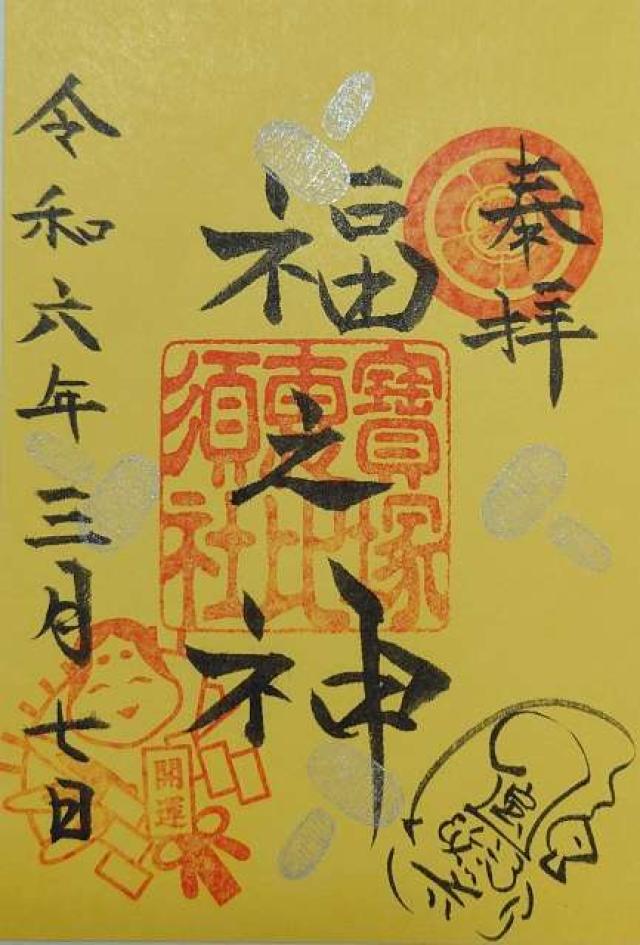 奉拝
福之神
寶塚
恵比
須社
令和六年三月七日
開運